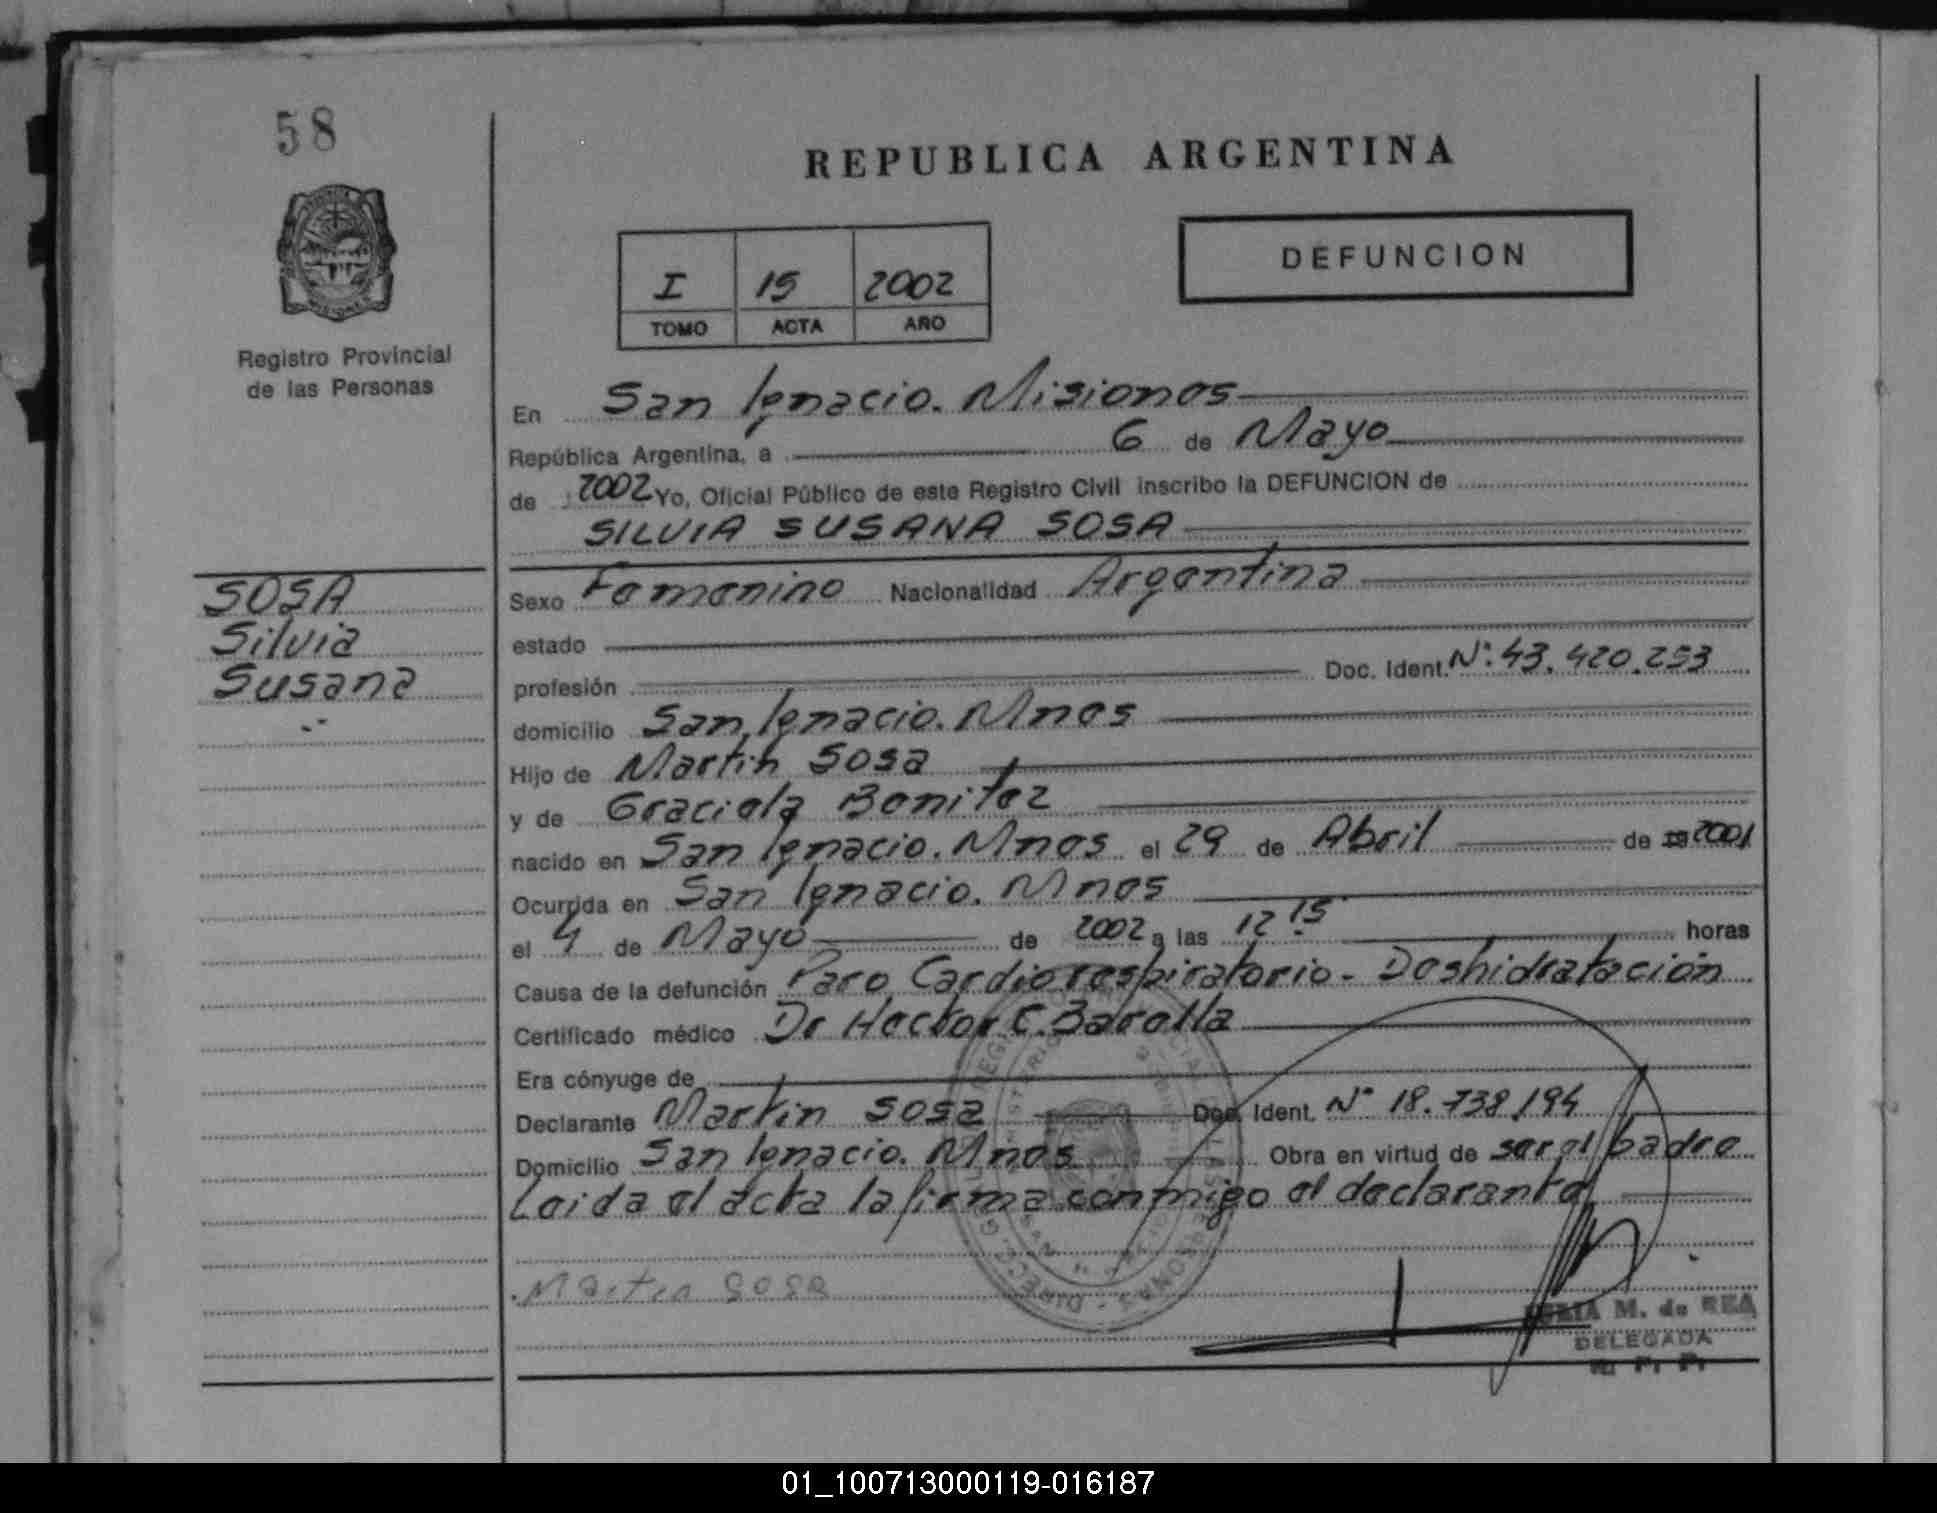 58
REPUBLICA ARGENTINA
DEFUNCION
I 15 2002
TOMO ACTA AÑO
Registro Provincial
de las Personas
En San Ignacio. Misiones
República Argentina, a 6 de Mayo
de 2002 Yo, Oficial Público de este Registro Civil inscribo la DEFUNCION de
SILVIA SUSANA SOSA
SOSA
Silvia
Susana
Sexo Femenino Nacionalidad Argentina
estado
profesión Doc. Ident. Nº: 43.420.253
domicilio San Ignacio. Mnes
Hijo de Martín Sosa
y de Graciela Benitez
nacido en San Ignacio. Mnes el 29 de Abril de 19 2001
Ocurrida en San Ignacio. Mnes
el 4 de Mayo de 2002 a las 12.15 horas
Causa de la defunción Paro Cardiorespiratorio - Deshidratación
Certificado médico Dr Hector C.
Era cónyuge de
Declarante Martin Sosa Doc. Ident. Nº 18.738.194
Domicilio San Ignacio. Mnes Obra en virtud de ser el padre
Leida el acta la firma conmigo el declarante
Martin Sosa
M. de REA
DELEGADA
R. P. P.
01_100713000119-016187